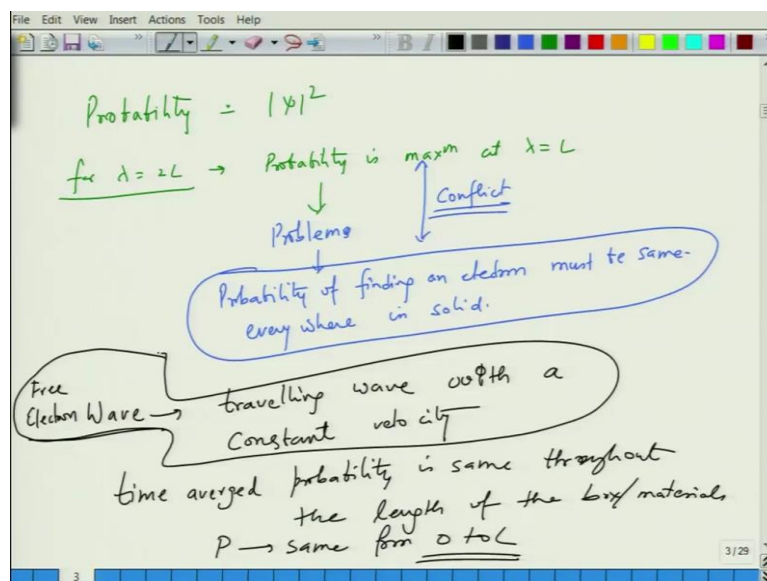 File Edit View Insert Actions Tools Help
B I
Probability = |ψ|²
for λ = 2L → Probability is maxᵐ at λ = L
Conflict
Problems
Probability of finding an electron must be same
every where in solid.
Free
Electron Wave → travelling wave with a
constant velocity
time averaged probability is same throughout
the length of the box/materials
P → same from 0 to L
3/29
3